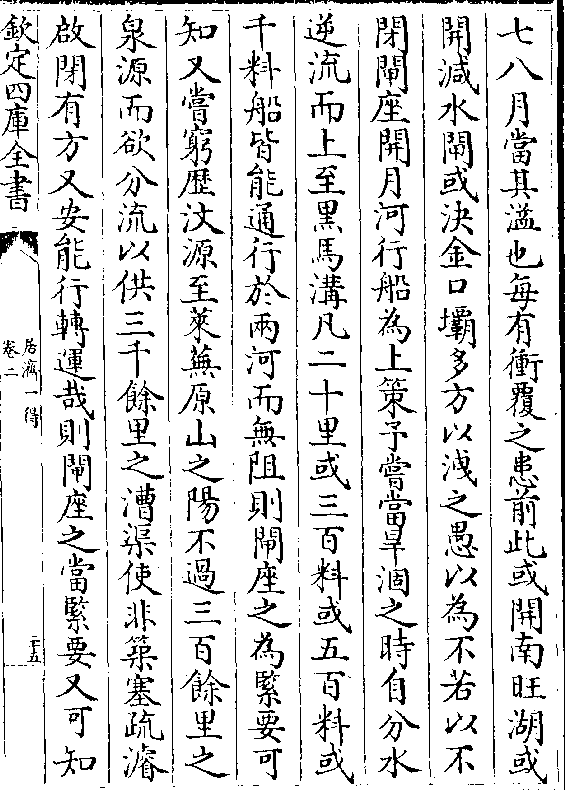 七八月當其溢也每有衝覆之患前此或開南旺湖或
開減水閘或決金口壩多方以洩之愚以為不若以不
閉閘座開月河行船為上策予嘗當旱涸之時自分水
逆流而上至黑馬溝凡二十里或三百料或五百料或
千料船皆能通行於兩河而無阻則閘座之為緊要可
知又嘗窮歷汶源至萊蕪原山之陽不過三百餘里之
泉源而欲分流以供三千餘里之漕渠使非築塞疏濬
啟閉有方又安能行轉運哉則閘座之當緊要又可知
欽定四庫全書
居濟一得
卷二
二十五